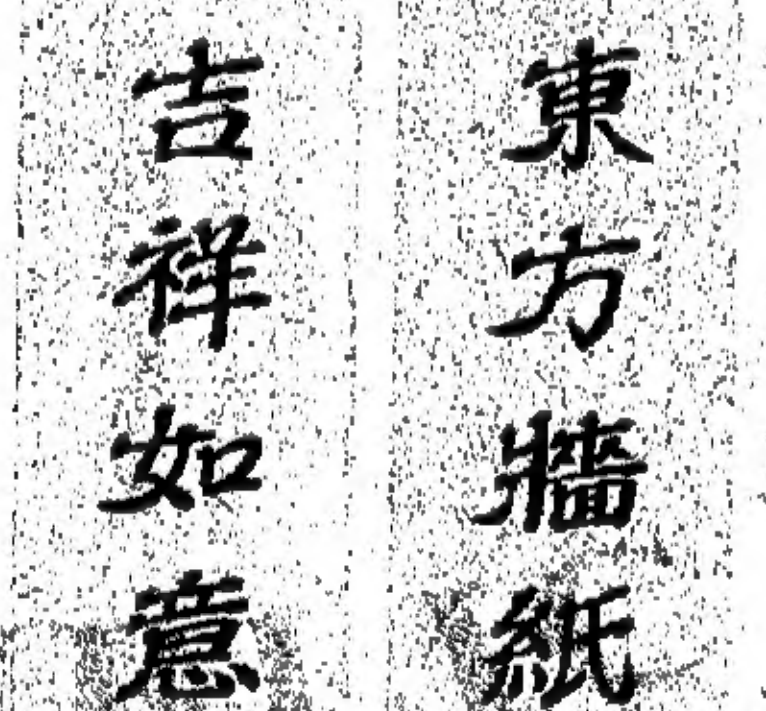 東方牆紙
吉祥如意